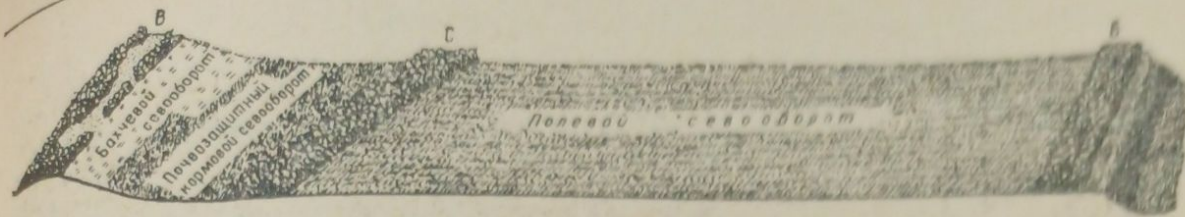 В
С
В
Бахчевой
севооборот
Почвозащитный
кормовой севооборот
Полевой севооборот